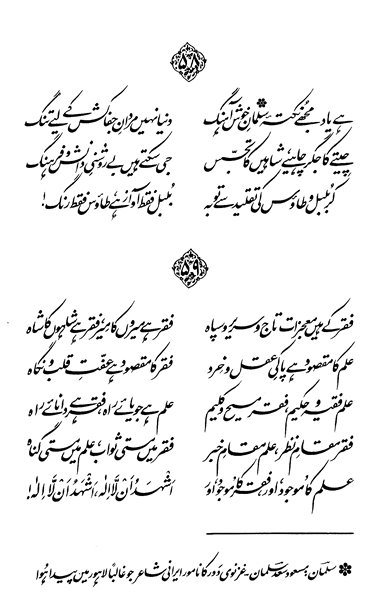 ۵۸
ہے یاد مجھے نکتۂ سلمانِ خوش آہنگ
دنیا نہیں مردانِ جفاکش کے لیے تنگ
چیتے کا جگر چاہیے، شاہیں کا تجسّس
جی سکتے ہیں بے روشنیِ دانش و فرہنگ
کر بُلبل و طاؤس کی تقلید سے توبہ
بُلبل فقط آواز ہے، طاؤس فقط رنگ!
۵۹
فقر کے ہیں معجزات تاج و سریر و سپاہ
فقر ہے میروں کا میر، فقر ہے شاہوں کا شاہ
علم کا مقصود ہے پاکیِ عقل و خرد
فقر کا مقصود ہے عفّتِ قلب و نگاہ
علم فقیہ و حکیم، فقر مسیح و کلیم
علم ہے جویائے راہ، فقر ہے دانائے راہ
فقر مقامِ نظر، علم مقامِ خبر
فقر میں مستی ثواب، علم میں مستی گناہ
علم کا موجود اور، فقر کا موجود اور
اَشْہَدُ اَنْ لَّا اِلٰہ، اَشْہَدُ اَنْ لَّا اِلٰہ!
سلمان: مسعود سعد سلمان - غزنوی دور کا نامور ایرانی شاعر جو غالباً لاہور میں پیدا ہُوا